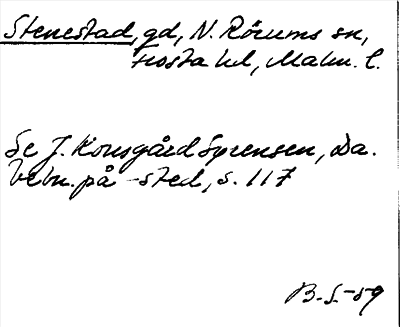 Stenestad, gd, N. Rörums sn,
Frosta hd, Malm. l.
Se J. Kousgård Sørensen, Da.
bebn. på -sted, s. 117
B. S-59